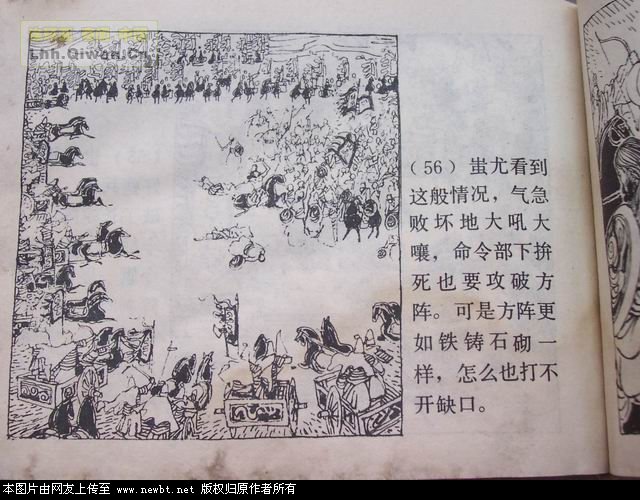 Lhh.Qiwan.Cn
(56) 蚩尤看到
这般情况，气急
败坏地大吼大
嚷，命令部下拚
死也要攻破方
阵。可是方阵更
如铁铸石砌一
样，怎么也打不
开缺口。
本图片由网友上传至 www.newbt.net 版权归原作者所有